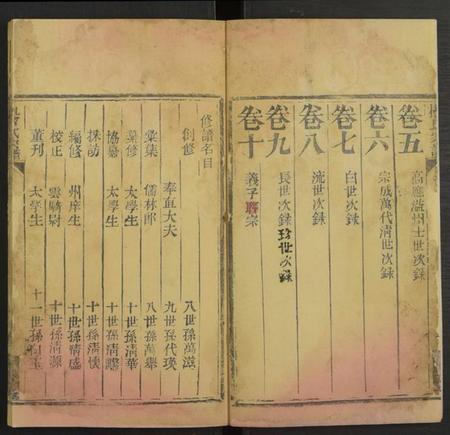 卷五 高應汝州士世次錄
卷六 宗成萬代清世次錄
卷七 白世次錄
卷八 沈世次錄
卷九 長世次錄 珍世次錄
卷十 義子聯宗
修譜名目
創修 八世孫萬滋
奉直大夫 九世孫代瑛
彙集 儒林郎 八世孫萬舉
彙修 太學生 十世孫清華
協纂 太學生 十世孫清
採訪 太學生 十世孫清懷
編修 州庠生 十世孫清盛
校正 雲騎尉 十世孫清源
董刊 太學生 十一世孫